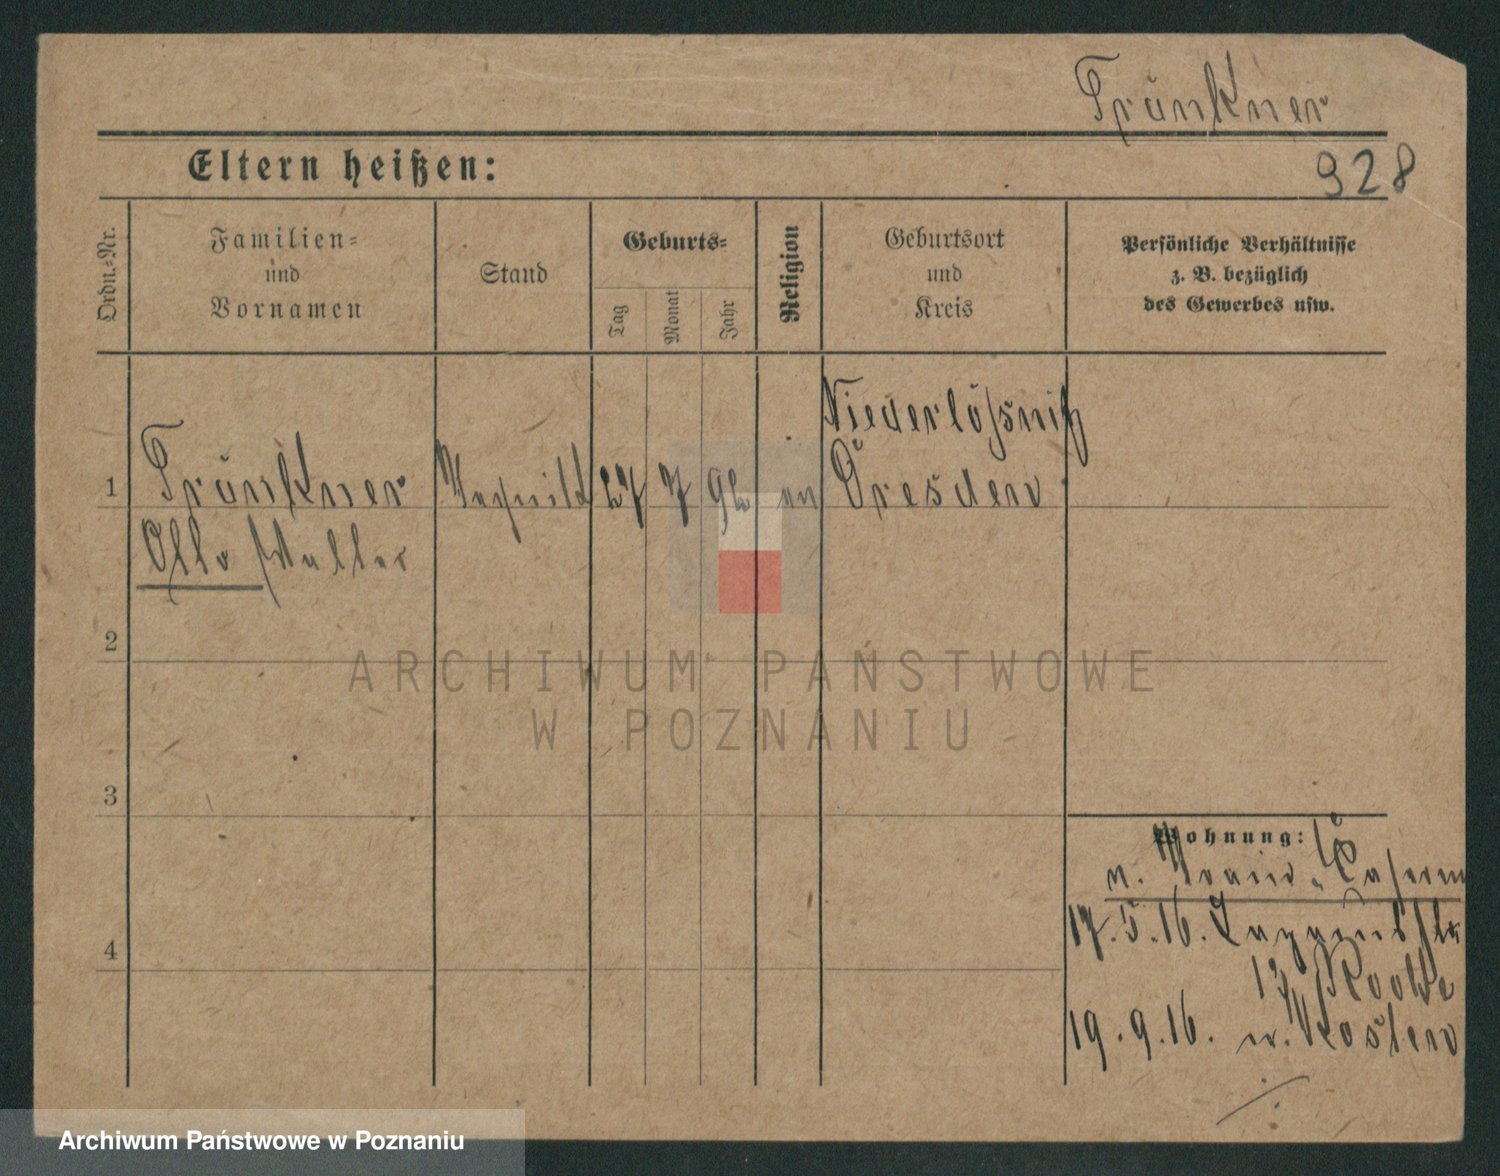 Tränkner
Eltern heißen:
928
Ordn.-Nr.
Familien-
und
Vornamen
Stand
Geburts-
Tag
Monat
Jahr
Religion
Geburtsort
und
Kreis
Persönliche Verhältnisse
z. B. bezüglich
des Gewerbes usw.
Niederlößnitz
1
Tränkner
27
7
92
Dresden
Otto Walter
2
ARCHIWUM PAŃSTWOWE
W POZNANIU
3
Wohnung:
17.5.16.
4
19.9.16. n. Kosten
Archiwum Państwowe w Poznaniu